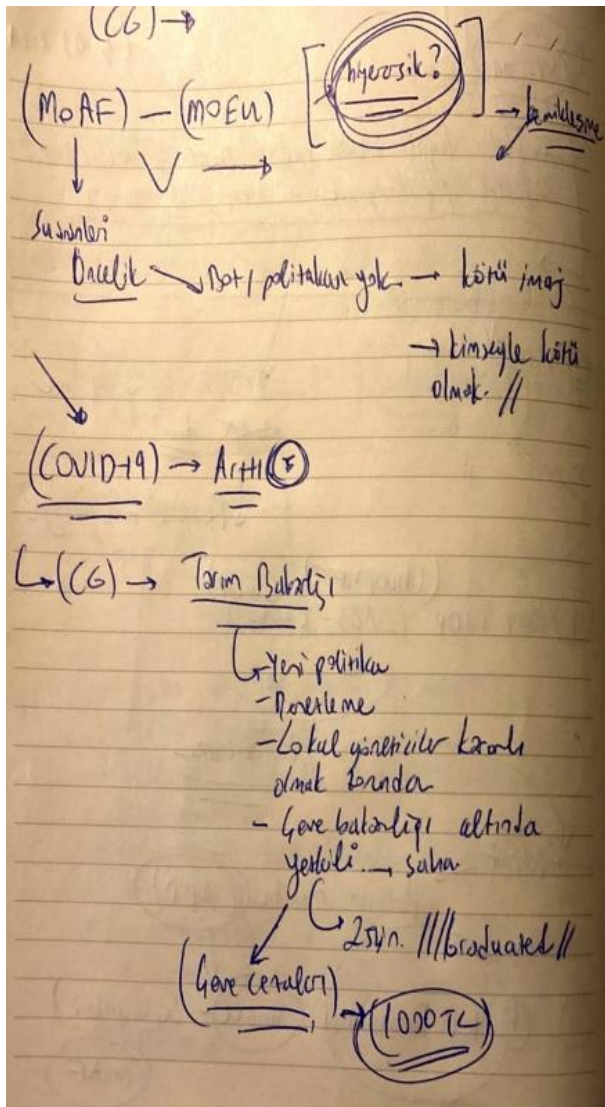 (CG) →
[hiyerarşik?]
(MoAF) – (MOEU) → kemikleşme
Öncelik → Bot / politakası yok → kötü imaj
→ kimseyle kötü
olmak. //
(COVID-19) → Arttı
(CG) → Tarım Bakanlığı
Yeni politika
- Denetleme
- Lokal yöneticiler kararlı
olmak zorunda
- Çevre bakanlığı altında
yetkili → saha
25yin. /// Graduated //
(Çevre cezaları)
→ (1000 TL)